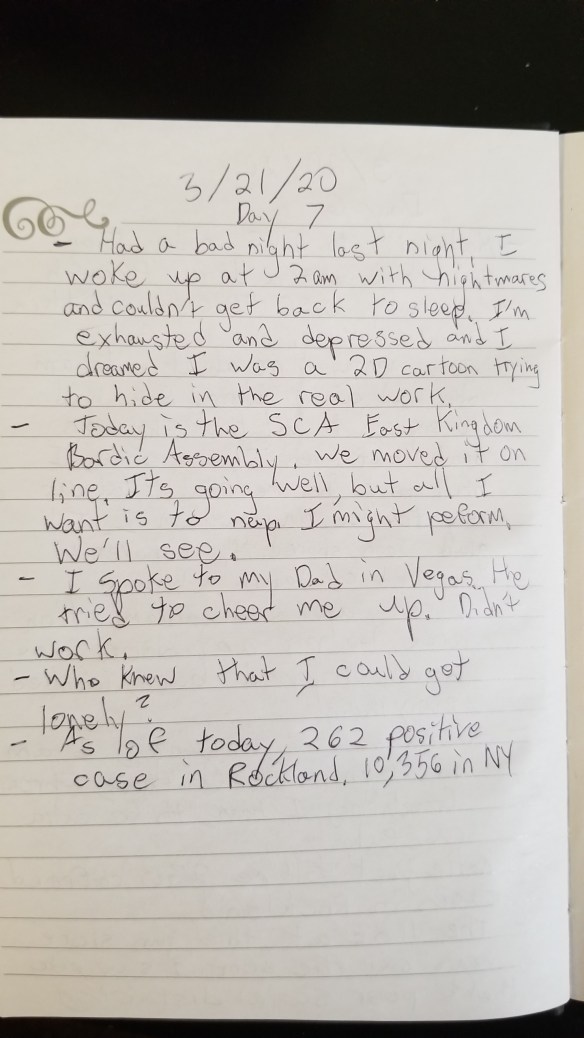 3/21/20
Day 7
- Had a bad night last night, I
woke up at 2am with nightmares
and couldn't get back to sleep. I'm
exhausted and depressed and I
dreamed I was a 2D cartoon trying
to hide in the real work.
- Today is the SCA East Kingdom
Bardic Assembly. we moved it on
line. It's going well, but all I
want is to nap. I might peform.
We'll see.
- I spoke to my Dad in Vegas. He
tried to cheer me up. Didn't
work.
- Who knew that I could get
lonely?
- As of today, 262 positive
case in Rockland, 10,356 in NY